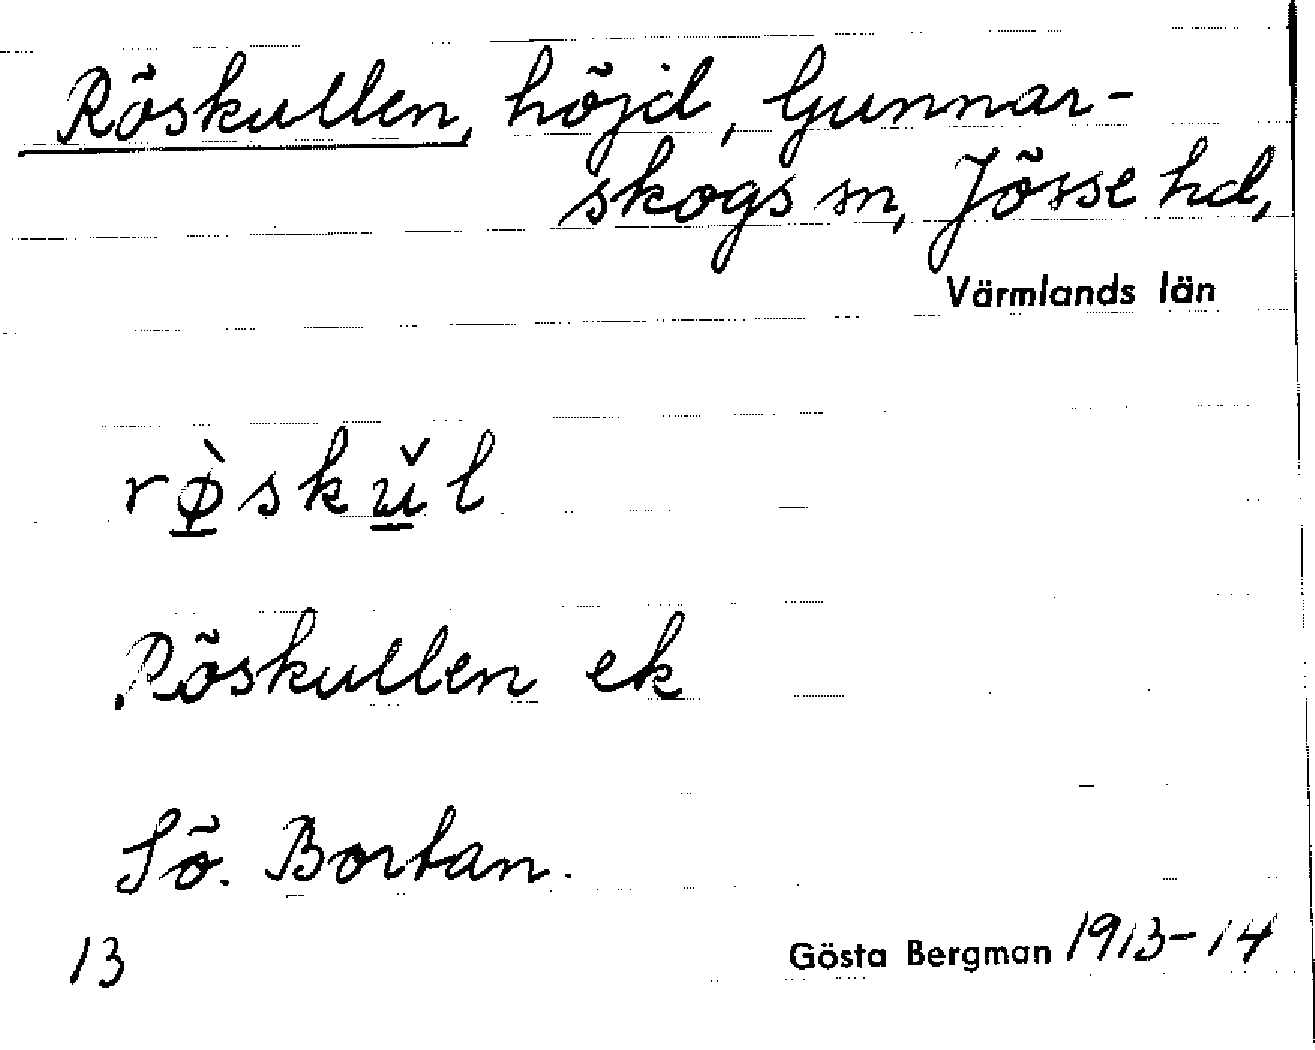 Röskullen, höjd, Gunnar-
skogs sn, Jösse hd,
Värmlands län
rø̱̀skǔ̱l
Röskullen ek
Sö. Bortan.
13
Gösta Bergman 1913-14